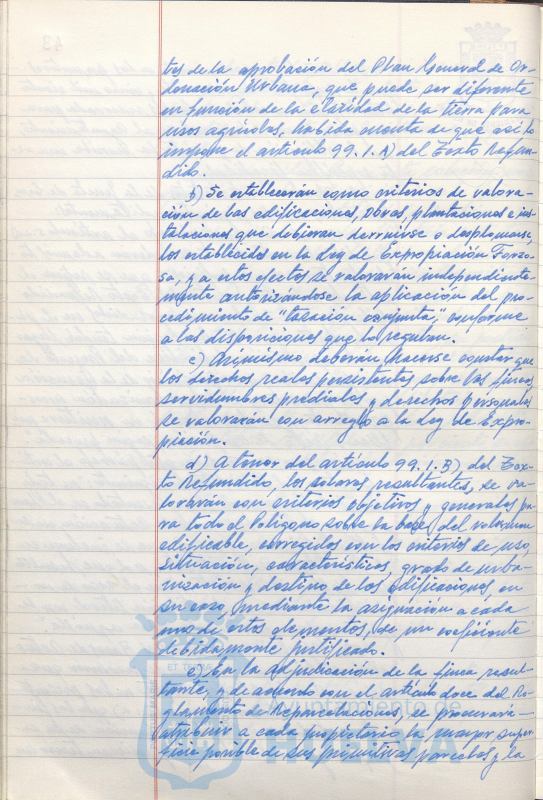 tes de la aprobación del Plan General de Or-
denación Urbana, que puede ser diferente
en función de la claridad de la tierra para
usos agrícolas, habida cuenta de que así lo
impone el artículo 99.1.A) del Texto Refun-
dido.
b) Se establecerán como criterios de valora-
ción de las edificaciones, obras, plantaciones e ins-
talaciones que debieran derruirse o desplomarse,
los establecidos en la Ley de Expropiación Forzo-
sa, y a estos efectos se valorarán independiente-
mente autorizándose la aplicación del pro-
cedimiento de "tasación conjunta", conforme
a las disposiciones que lo regulan.
c) Asimismo deberán hacerse constar que
los derechos reales persistentes sobre las fincas,
servidumbres prediales y derechos personales
se valorarán con arreglo a la Ley de Expro-
piación.
d) A tenor del artículo 99.1.B), del Tex-
to Refundido, los solares resultantes, se va-
lorarán con criterios objetivos y generales pa-
ra todo el Polígono sobre la base del volumen
edificable, corregidos con los criterios de uso,
situación, características, grado de urba-
nización y destino de los edificaciones, en
su caso, mediante la asignación a cada
uno de estos elementos, de un coeficiente
debidamente justificado.
e) En la adjudicación de la finca resul-
tante, y de acuerdo con el artículo doce del Re-
glamento de Reparcelaciones, se procurará
atribuir a cada propietario la mayor super-
ficie posible de sus primitivas parcelas y la
Ayuntamiento de
HUELVA